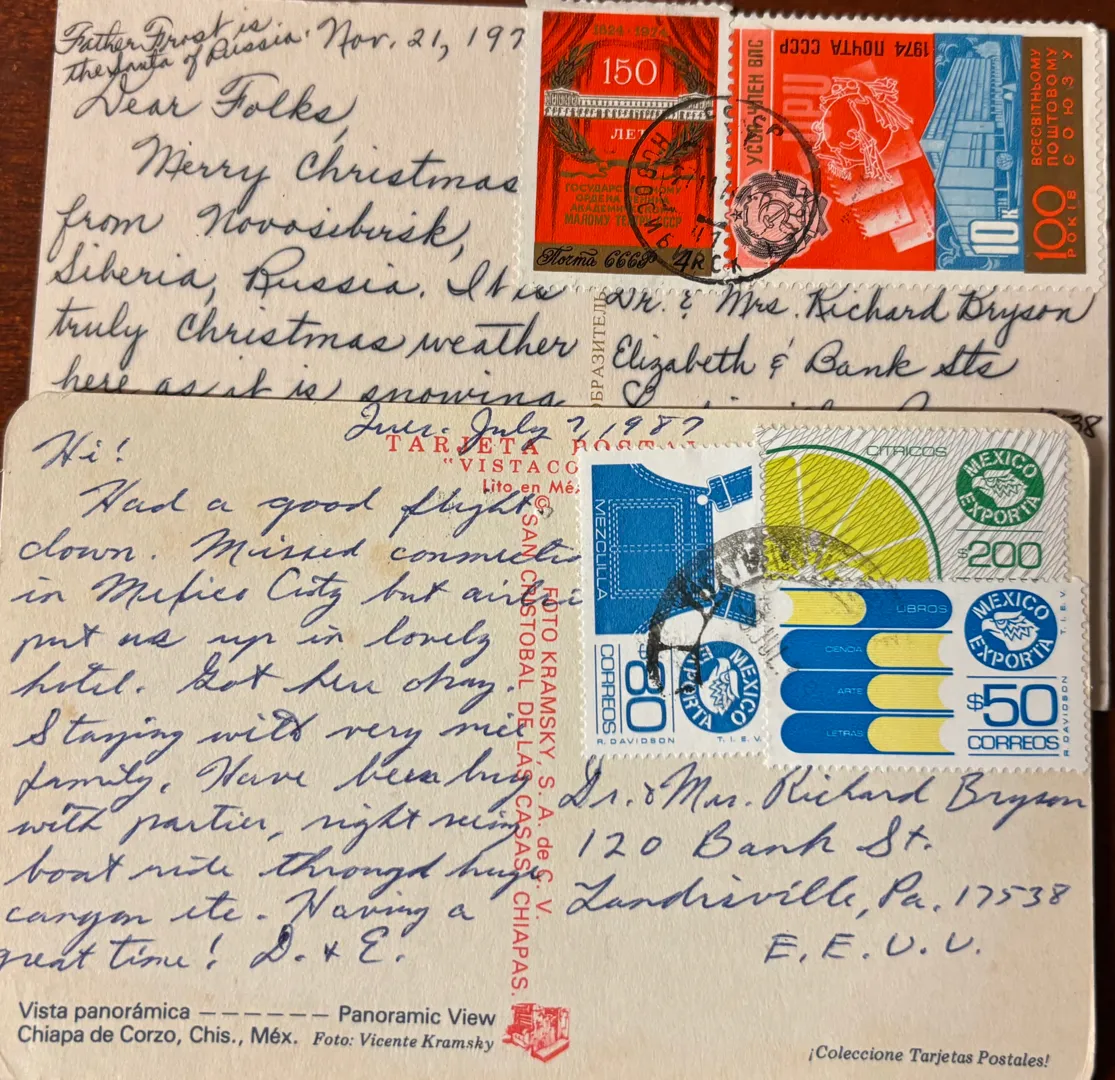 Father Frost is
the Santa of Russia. Nov. 21, 197
Dear Folks,
Merry Christmas
from Novosibirsk,
Siberia, Russia. It is
truly Christmas weather
here as it is snowing
1824-1974
150
ЛЕТ
ГОСУДАРСТВЕННОМУ
ОРДЕНА ЛЕНИНА
АКАДЕМИЧЕСКОМУ
МАЛОМУ ТЕАТРУ СССР
Почта СССР 4к
1974 ПОЧТА СССР
УССР-ЧЛЕН ВПС
UPU
10К
100
РОКІВ
ВСЕСВІТНЬОМУ
ПОШТОВОМУ
СОЮЗУ
НОВОСИБИРСК
Dr. & Mrs. Richard Bryson
Elizabeth & Bank Sts
38
Tues. July 7, 1987
TARJETA POSTAL
"VISTACO
Lito en Mé
Hi!
Had a good flight
down. Missed connecti
in Mexico City but airlin
put us up in lovely
hotel. Got here okay.
Staying with very nice
family. Have been busy
with parties, sight seeing
boat ride through huge
canyon etc. Having a
great time! D. & E.
© SAN CRISTOBAL DE LAS CASAS, CHIAPAS.
FOTO KRAMSKY, S. A. de C. V.
MEZCLILLA
$80
CORREOS
MEXICO
EXPORTA
R. DAVIDSON
T. I. E. V.
CITRICOS
MEXICO
EXPORTA
$200
LIBROS
CIENCIA
ARTE
LETRAS
MEXICO
EXPORTA
$50
CORREOS
T. I. E. V.
R. DAVIDSON
Dr. & Mrs. Richard Bryson
120 Bank St.
Landisville, Pa. 17538
E. E. U. U.
Vista panorámica ------ Panoramic View
Chiapa de Corzo, Chis., Méx. Foto: Vicente Kramsky
¡Coleccione Tarjetas Postales!